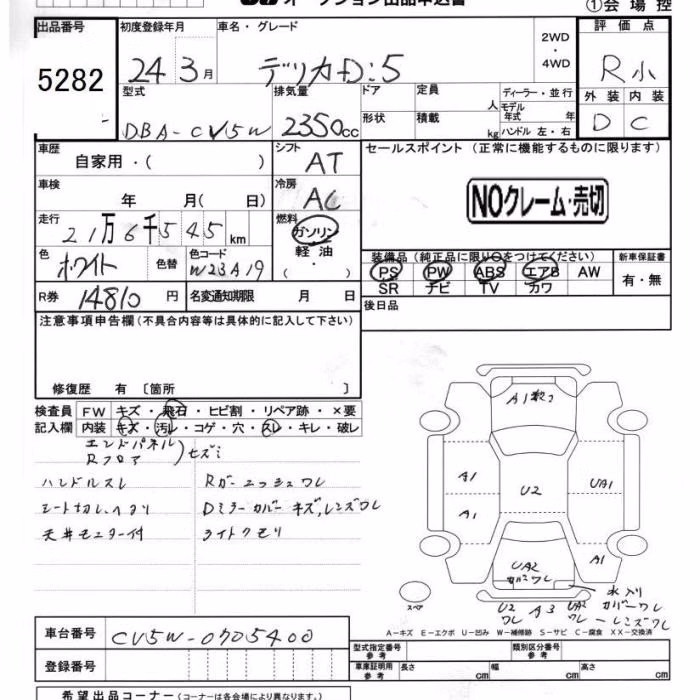 オークション出品申込書
①会場控
出品番号 初度登録年月 車名・グレード 2WD・4WD 評価点
5282 24 3月 デリカD:5 R小
型式 排気量 ドア 定員 人 ディーラー・並行 外装 内装
DBA-CV5W 2350cc 形状 積載 kg モデル年式 年 ハンドル 左・右 D C
車歴 自家用・( ) シフト AT セールスポイント(正常に機能するものに限ります)
車検 年 月( 日) 冷房 AC NOクレーム・売切
走行 21万6千545km 燃料 ガソリン 軽油 ( ・ )
色 ホワイト 色替 色コード W23A19
装備品(純正品に限り○をつけてください) 新車保証書
PS PW ABS エアB AW 有・無
SR ナビ TV カワ
R券 14810円 名変通知期限 月 日 後日品
注意事項申告欄(不具合内容等は具体的に記入して下さい)
修復歴 有〔箇所 〕
検査員記入欄 FW キズ・飛石・ヒビ割・リペア跡・×要
内装 キズ・汚レ・コゲ・穴・スレ・キレ・破レ
エンドパネル
Rフロア
ハンドルスレ Rガーニッシュワレ
シートヨゴレ、ヘタリ Dミラーカバーキズ、レンズワレ
天井モニター付 ライトクモリ
A1
A1 UA1
U2
A1
A1
UA2
カバワレ
スペア
U2 ワレ A3 UA2 ワレ
水入り
カバーワレ
レンズワレ
A-キズ E-エクボ U-凹み W-補修跡 S-サビ C-腐食 XX-交換済
車台番号 CV5W-0705400
登録番号
型式指定番号 参考 類別区分番号 参考
車庫証明用 参考 長さ cm 幅 cm 高さ cm
希望出品コーナー(コーナーは各会場により異なります。)